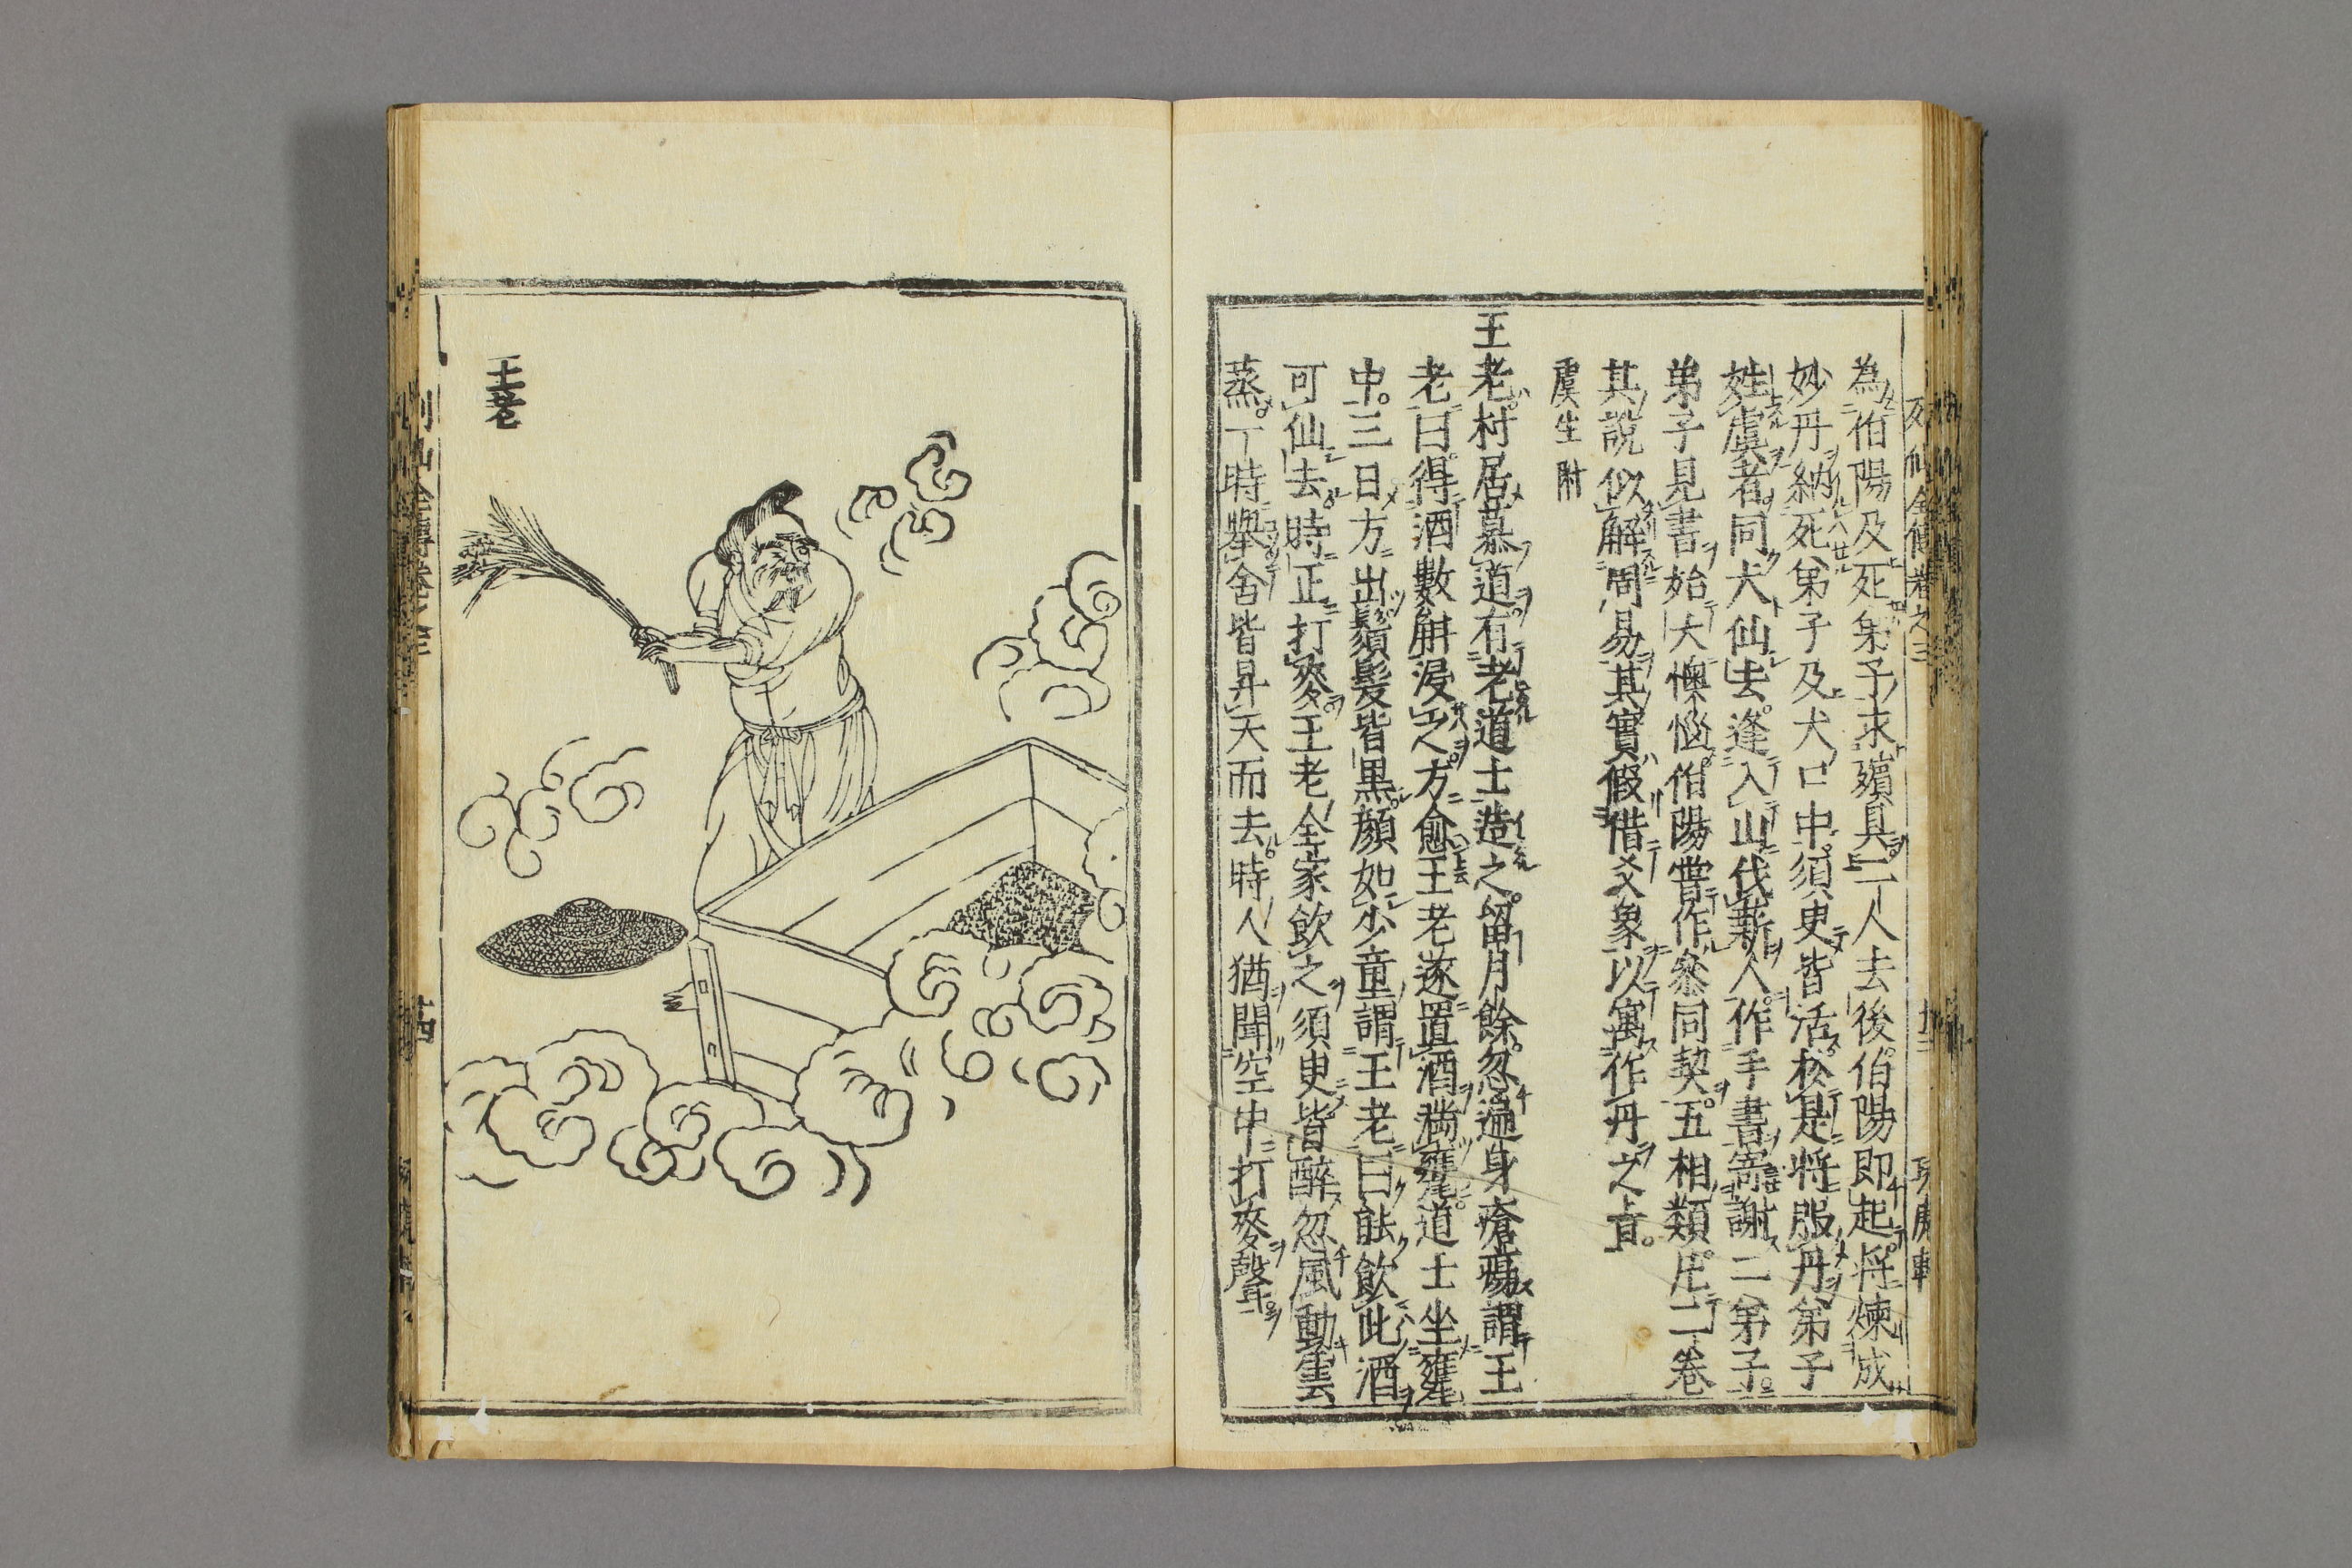 為伯陽及死弟子求殯具二人去後伯陽即起将煉成
妙丹納死弟子及犬口中須臾皆活於是将服丹弟子
姓虞者同犬仙去逢入山伐薪人作手書寄謝二弟子
弟子見書始大懊惱伯陽嘗作叅同契五相類凡二卷
其說似解周易其實假借爻象以寓作丹之旨
虞生附
王老村居慕道有老道士造之留月餘忽遍身瘡瘍謂王
老曰得酒數斛浸之方愈王老遂置酒満甕道士坐甕
中三日方出鬚髮皆黒顔如少童謂王老曰能飲此酒
可仙去時正打麥王老全家飲之須臾皆醉忽風動雲
蒸一時舉舍皆昇天而去時人猶聞空中打麥聲
王老